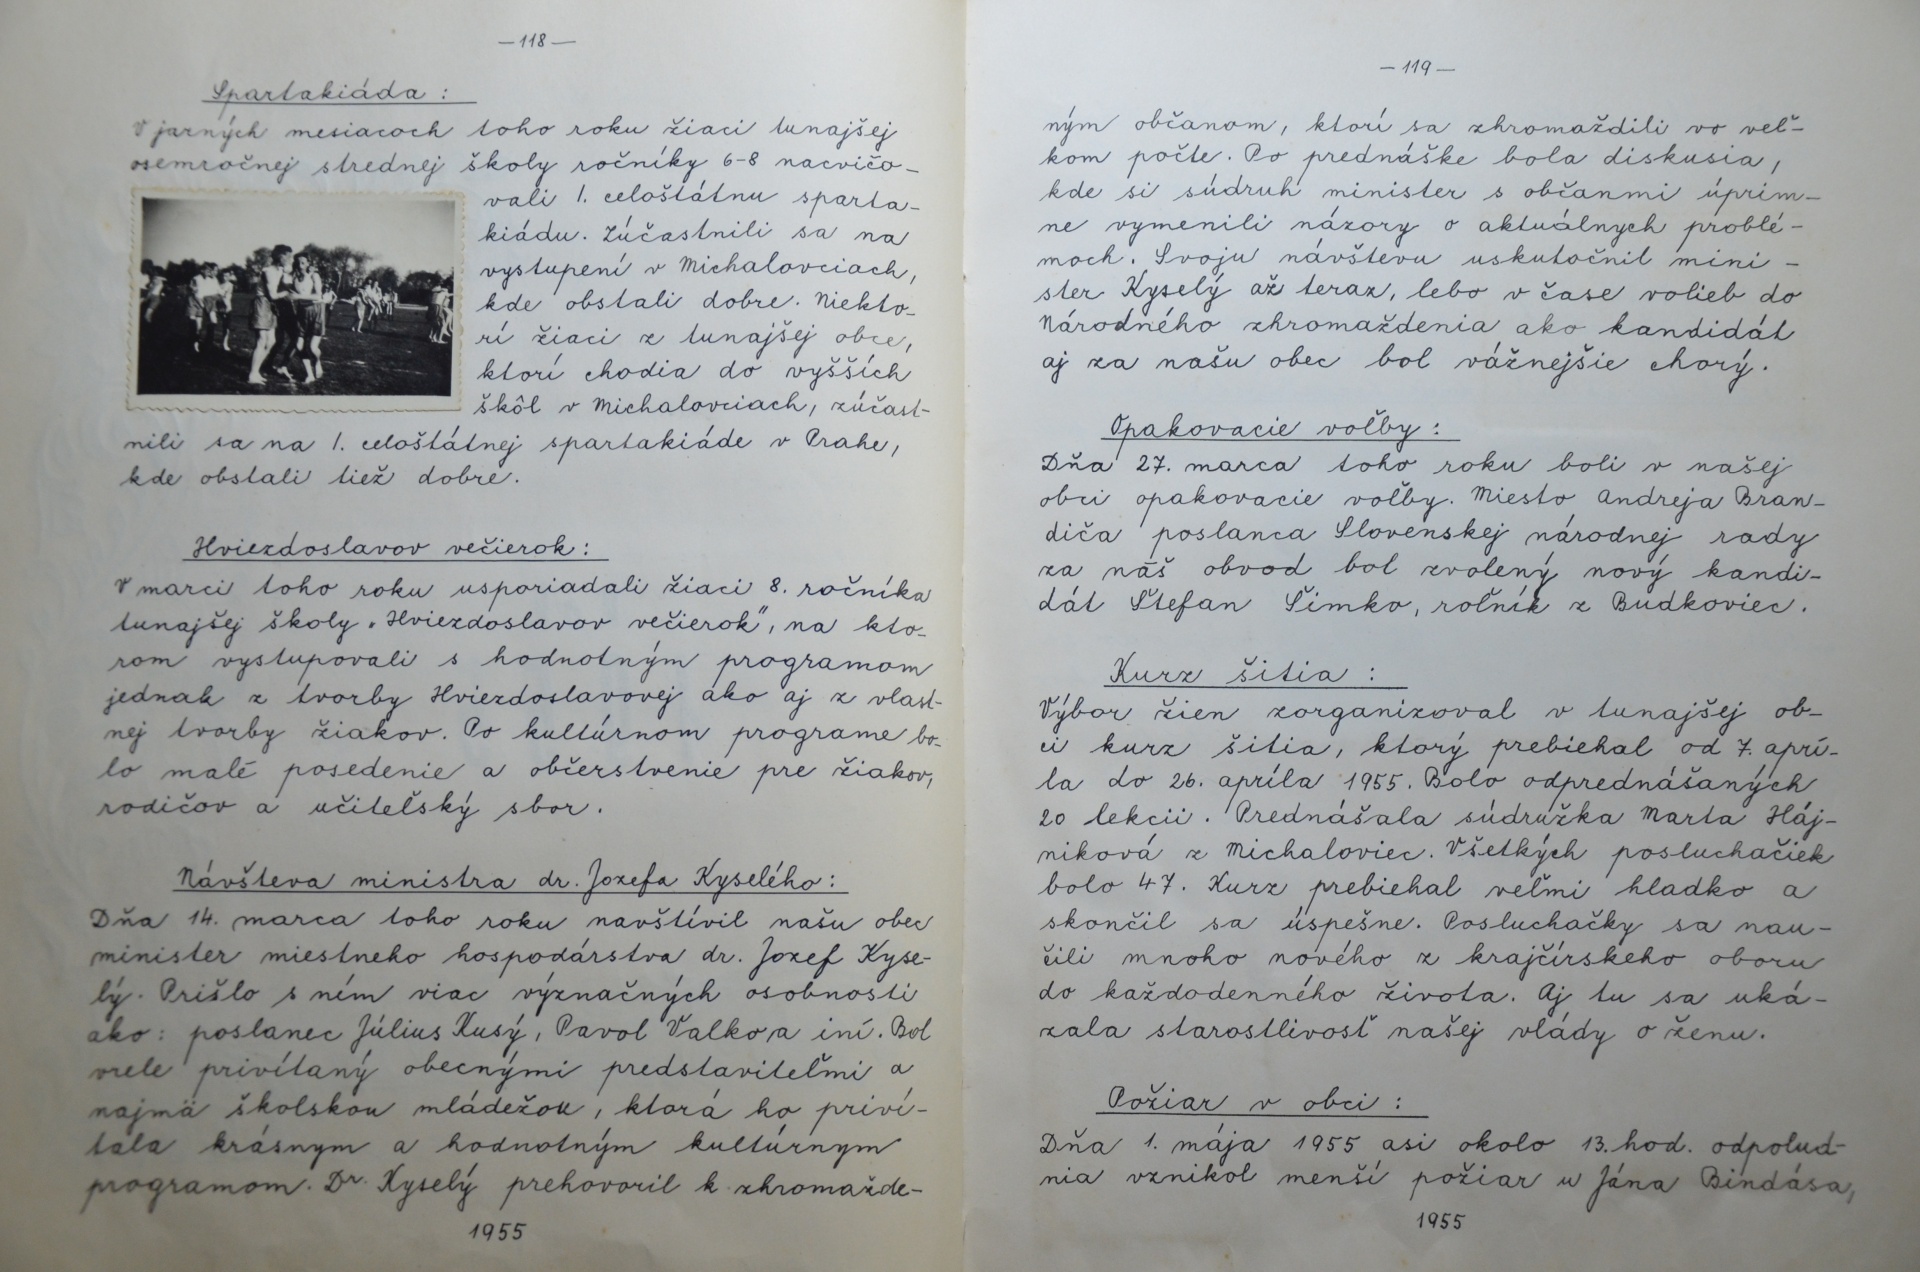 —118—
Spartakiáda :
V jarných mesiacoch toho roku žiaci tunajšej
osemročnej strednej školy ročníky 6-8 nacvičo-
vali 1. celoštátnu sparta-
kiádu. Zúčastnili sa na
vystupení v Michalovciach,
kde obstali dobre. Niekto-
rí žiaci z tunajšej obce,
ktorí chodia do vyšších
škôl v Michalovciach, zúčast-
nili sa na 1. celoštátnej spartakiáde v Prahe,
kde obstali tiež dobre.
Hviezdoslavov večierok :
V marci toho roku usporiadali žiaci 8. ročníka
tunajšej školy „Hviezdoslavov večierok", na kto-
rom vystupovali s hodnotným programom
jednak z tvorby Hviezdoslavovej ako aj z vlast-
nej tvorby žiakov. Po kultúrnom programe bo-
lo malé posedenie a občerstvenie pre žiakov,
rodičov a učiteľský sbor.
Návšteva ministra dr. Jozefa Kyselého :
Dňa 14. marca toho roku navštívil našu obec
minister miestneho hospodárstva dr. Jozef Kyse-
lý. Prišlo s ním viac význačných osobností
ako: poslanec Július Kusý, Pavol Valko, a iní. Bol
vrele privítaný obecnými predstaviteľmi a
najmä školskou mládežou, ktorá ho priví-
tala krásnym a hodnotným kultúrnym
programom. Dr. Kyselý prehovoril k zhromažde-
1955
—119—
ným občanom, ktorí sa zhromaždili vo veľ-
kom počte. Po prednáške bola diskusia,
kde si súdruh minister s občanmi úprim-
ne vymenili názory o aktuálnych problé-
moch. Svoju návštevu uskutočnil mini-
ster Kyselý až teraz, lebo v čase volieb do
Národného zhromaždenia ako kandidát
aj za našu obec bol vážnejšie chorý.
Opakovacie voľby :
Dňa 27. marca toho roku boli v našej
obci opakovacie voľby. Miesto Andreja Bran-
diča poslanca Slovenskej národnej rady
za náš obvod bol zvolený nový kandi-
dát Štefan Šimko, roľník z Budkoviec.
Kurz šitia :
Výbor žien zorganizoval v tunajšej ob-
ci kurz šitia, ktorý prebiehal od 7. aprí-
la do 26. apríla 1955. Bolo odprednášaných
20 lekcii. Prednášala súdružka Marta Háj-
niková z Michaloviec. Všetkých poslucháčiek
bolo 47. Kurz prebiehal veľmi hladko a
skončil sa úspešne. Poslucháčky sa nau-
čili mnoho nového z krajčírskeho oboru
do každodenného života. Aj tu sa uká-
zala starostlivosť našej vlády o ženu.
Požiar v obci :
Dňa 1. mája 1955 asi okolo 13. hod. odpolud-
nia vznikol menší požiar u Jána Bindása,
1955